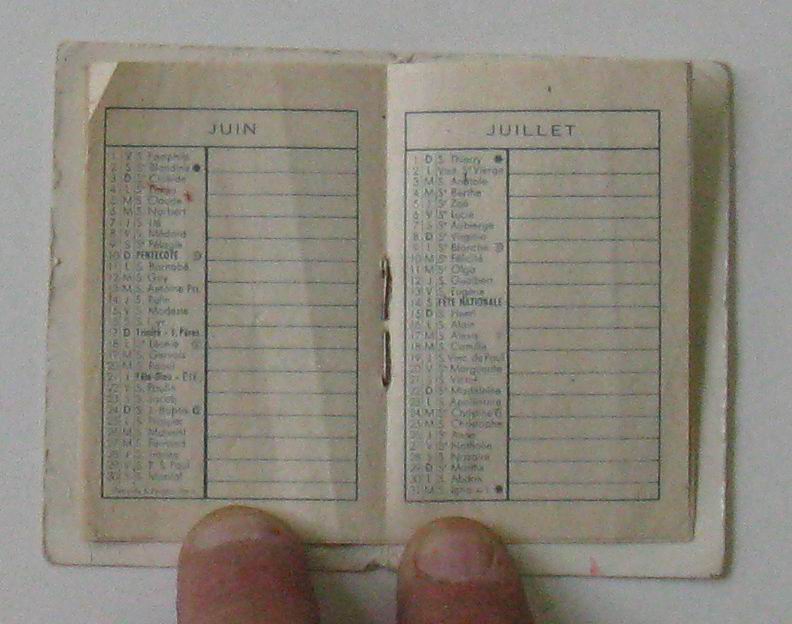 JUIN
1 V S. Pamphile
2 S Sᵉ Blandine
3 D Sᵉ Clotilde
4 L S.
5 M S. Claude
6 M S. Norbert
7 J S.
8 V S. Médard
9 S Sᵉ Pélagie
10 D PENTECÔTE
11 L S. Barnabé
12 M S. Guy
13 M S. Antoine Pad.
14 J S. Rufin
15 V S. Modeste
16 S S. Cyr
17 D Trinité - F. Pères
18 L Sᵉ Léonie
19 M S. Gervais
20 M S.
21 J Fête-Dieu - ETÉ
22 V S. Paulin
23 S S. Jacob
24 D S. J.-Baptis
25 L S. Prosper
26 M S. Maixent
27 M S. Fernand
28 J S. Irénée
29 V S. P. S. Paul
30 S S. Martial
JUILLET
1 D S. Thierry
2 L Visit. Sᵉ Vierge
3 M S. Anatole
4 M Sᵉ Berthe
5 J Sᵉ Zoé
6 V Sᵉ Lucie
7 S Sᵉ Aubierge
8 D Sᵉ Virginie
9 L Sᵉ Blanche
10 M Sᵉ Félicité
11 M S. Olga
12 J S. Gualbert
13 V S. Eugène
14 S FÊTE NATIONALE
15 D S. Henri
16 L S. Alain
17 M S. Alexis
18 M S. Camille
19 J S. Vinc. de Paul
20 V Sᵉ Marguerite
21 S S. Victor
22 D Sᵉ Madeleine
23 L S. Apollinaire
24 M Sᵉ Christine
25 M S. Christophe
26 J Sᵉ Anne
27 V Sᵉ Nathalie
28 S S. Nazaire
29 D Sᵉ Marthe
30 L S. Abdon
31 M S. Ignace